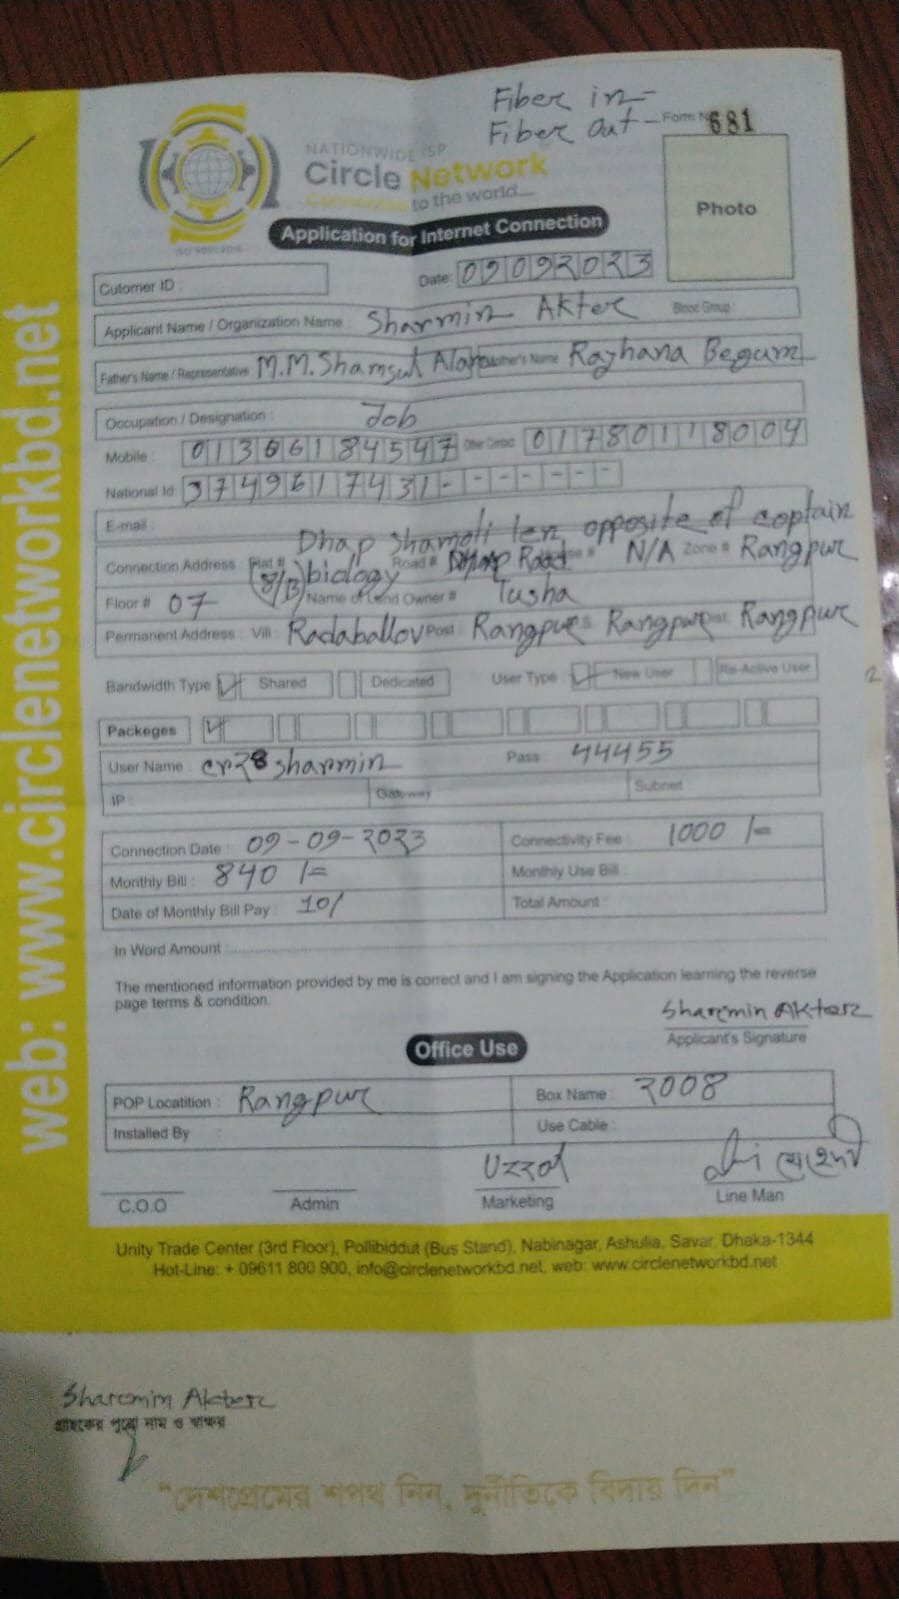 Fiber in-
Fiber Out-
Form N 681
NATIONWIDE ISP
Circle Network
Connected to the world....
ISO 9001:2015
Photo
Application for Internet Connection
Cutomer ID :
Date: 09092023
Applicant Name / Organization Name : Sharmin Akter Blood Group :
Father's Name / Representative M.M.Shamsul Alam Mother's Name Rayhana Begum
Occupation / Designation : Job
Mobile : 01306184547 Other Contact 01780118004
National Id 3749617431-------
E-mail :
Dhap Shamoli len opposite of coptain
Connection Address : Flat # (8/B) biology Road # Road N/A Zone # Rangpur
Floor # 07 Name of Land Owner # Tusha
Permanent Address : Vill Radaballov Post Rangpur Rangpur Rangpur
Bandwidth Type Shared Dedicated User Type : New User Re-Active User
2
Packeges
User Name : cr28sharmin Pass : 44455
IP : Gateway Subnet
Connection Date : 09-09-2023 Connectivity Fee : 1000 /=
Monthly Bill : 840 /= Monthly Use Bill :
Date of Monthly Bill Pay : 10/ Total Amount :
In Word Amount :
The mentioned information provided by me is correct and I am signing the Application learning the reverse
page terms & condition.
Sharmin Akter
Applicant's Signature
Office Use
POP Locatition : Rangpur Box Name : 2008
Installed By : Use Cable :
Uzzal
C.O.O Admin Marketing Line Man
Unity Trade Center (3rd Floor), Pollibiddut (Bus Stand), Nabinagar, Ashulia, Savar, Dhaka-1344
Hot-Line: + 09611 800 900, info@circlenetworkbd.net, web: www.circlenetworkbd.net
web: www.circlenetworkbd.net
Sharmin Akter
গ্রাহকের পুরো নাম ও স্বাক্ষর
"দেশপ্রেমের শপথ নিন, দুর্নীতিকে বিদায় দিন"